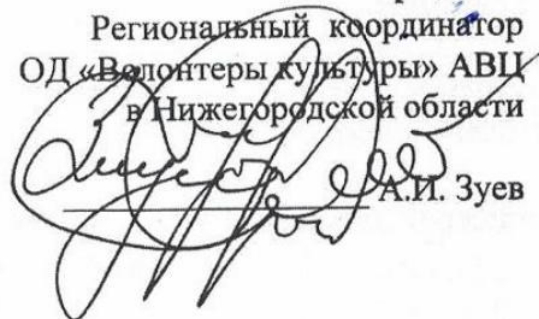 Региональный координатор
ОД «Волонтеры культуры» АВЦ
в Нижегородской области
А.И. Зуев